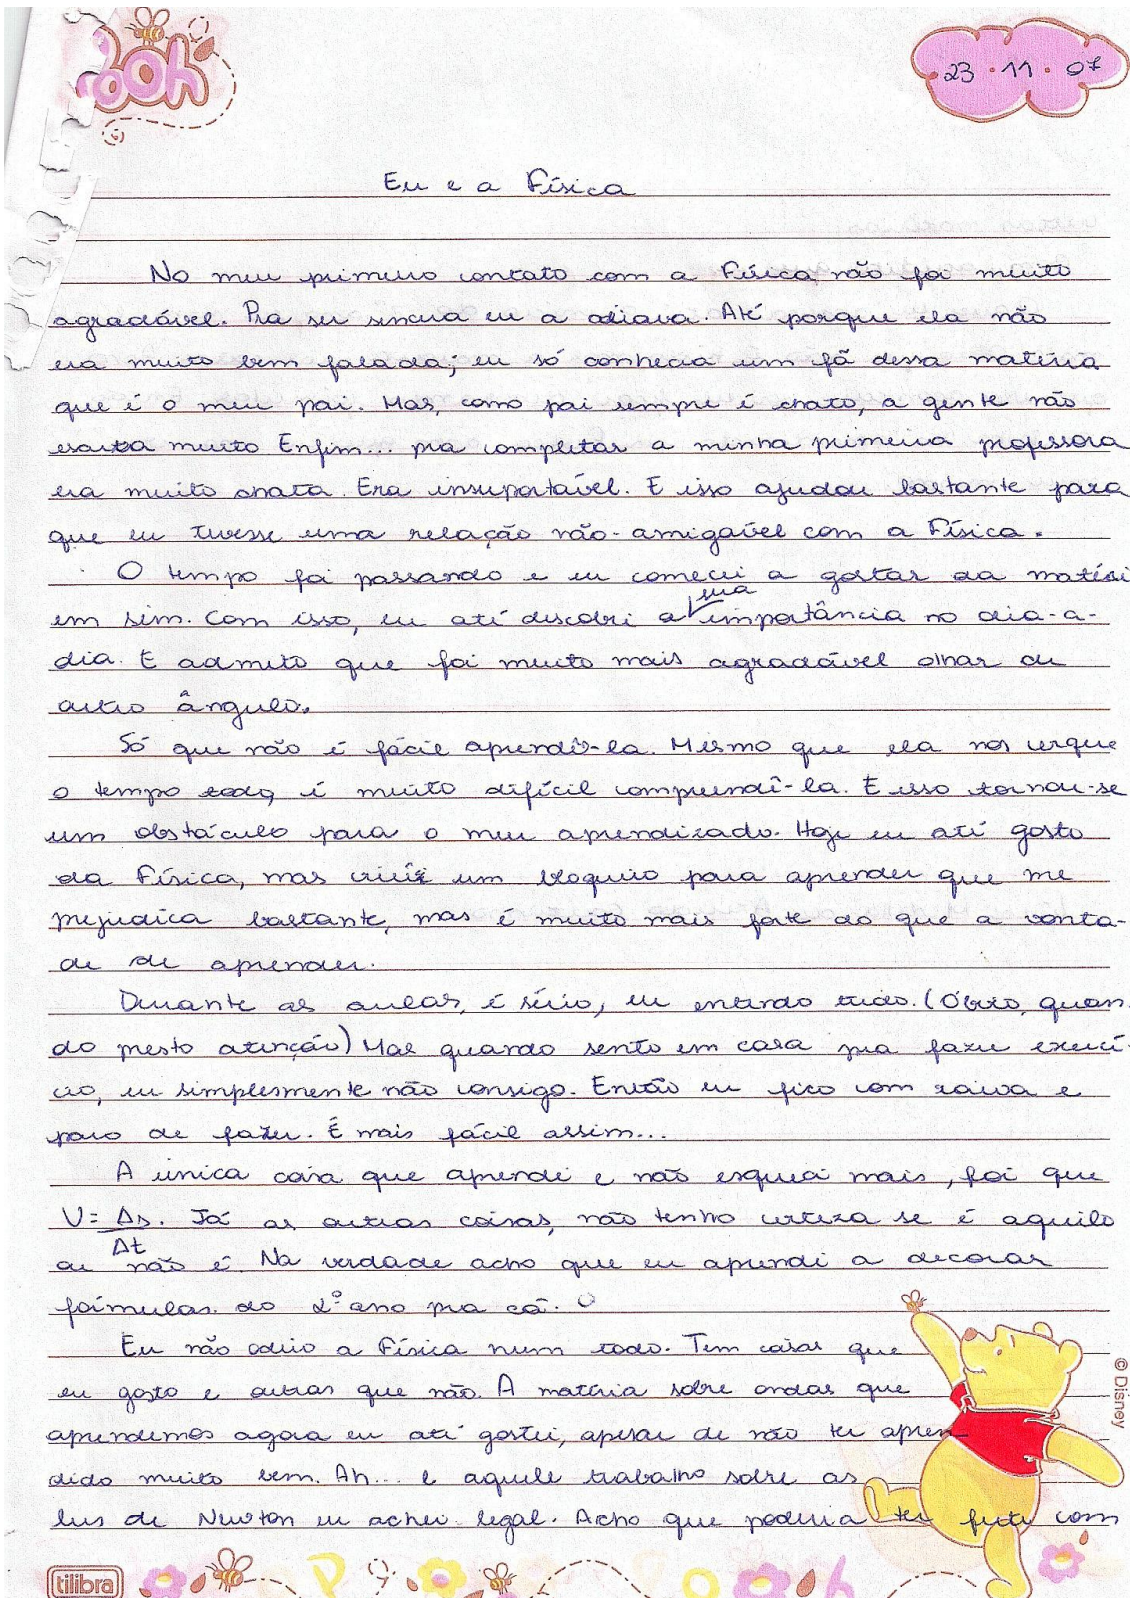 Pooh
23 . 11 . 07
Eu e a Física
No meu primeiro contato com a Física não foi muito
agradável. Pra ser sincera eu a odiava. Até porque ela não
era muito bem falada; eu só conhecia um fã dessa matéria
que é o meu pai. Mas, como pai sempre é chato, a gente não
escuta muito Enfim... pra completar a minha primeira professora
era muito chata. Era insuportável. E isso ajudou bastante para
que eu tivesse uma relação não-amigavél com a Física.
O tempo foi passando e eu comecei a gostar da matéri
em sim. Com isso, eu até descobri a sua importância no dia-a-
dia. E admito que foi muito mais agradável olhar de
outro ângulo.
Só que não é fácil aprendê-la. Mesmo que ela nos cerque
o tempo todo, é muito difícil compreendê-la. E isso tornou-se
um obstáculo para o meu aprendizado. Hoje eu até gosto
da Física, mas criei um bloqueio para aprender que me
prejudica bastante, mas é muito mais forte do que a vonta-
de de aprender.
Durante as aulas, é sério, eu entendo tudo. (Óbvio, quan-
do presto atenção) Mas quando sento em casa pra fazer exercí-
cio, eu simplesmente não consigo. Então eu fico com raiva e
paro de fazer. É mais fácil assim...
A única coisa que aprendi e não esqueci mais, foi que
V = Δs. Já as outras coisas, não tenho certeza se é aquilo
Δt
ou não é. Na verdade acho que eu aprendi a decorar
fórmulas do 2º ano pra cá.
Eu não odeio a Física num todo. Tem coisas que
eu gosto e outras que não. A matéria sobre ondas que
aprendemos agora eu até gostei, apesar de não ter apren
dido muito bem. Ah... e aquele trabalho sobre as
leis de Newton eu achei legal. Acho que poderia ter feito com
© Disney
tilibra
Pooh